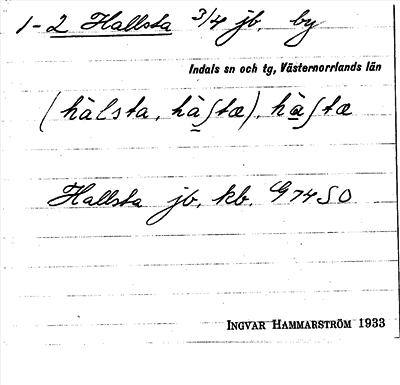 1-2 Hallsta 3/4 jb. by
Indals sn och tg, Västernorrlands län
(hàlsta, hàʃtæ), hàʃtæ
Hallsta jb. kb. G 74 SO
INGVAR HAMMARSTRÖM 1933